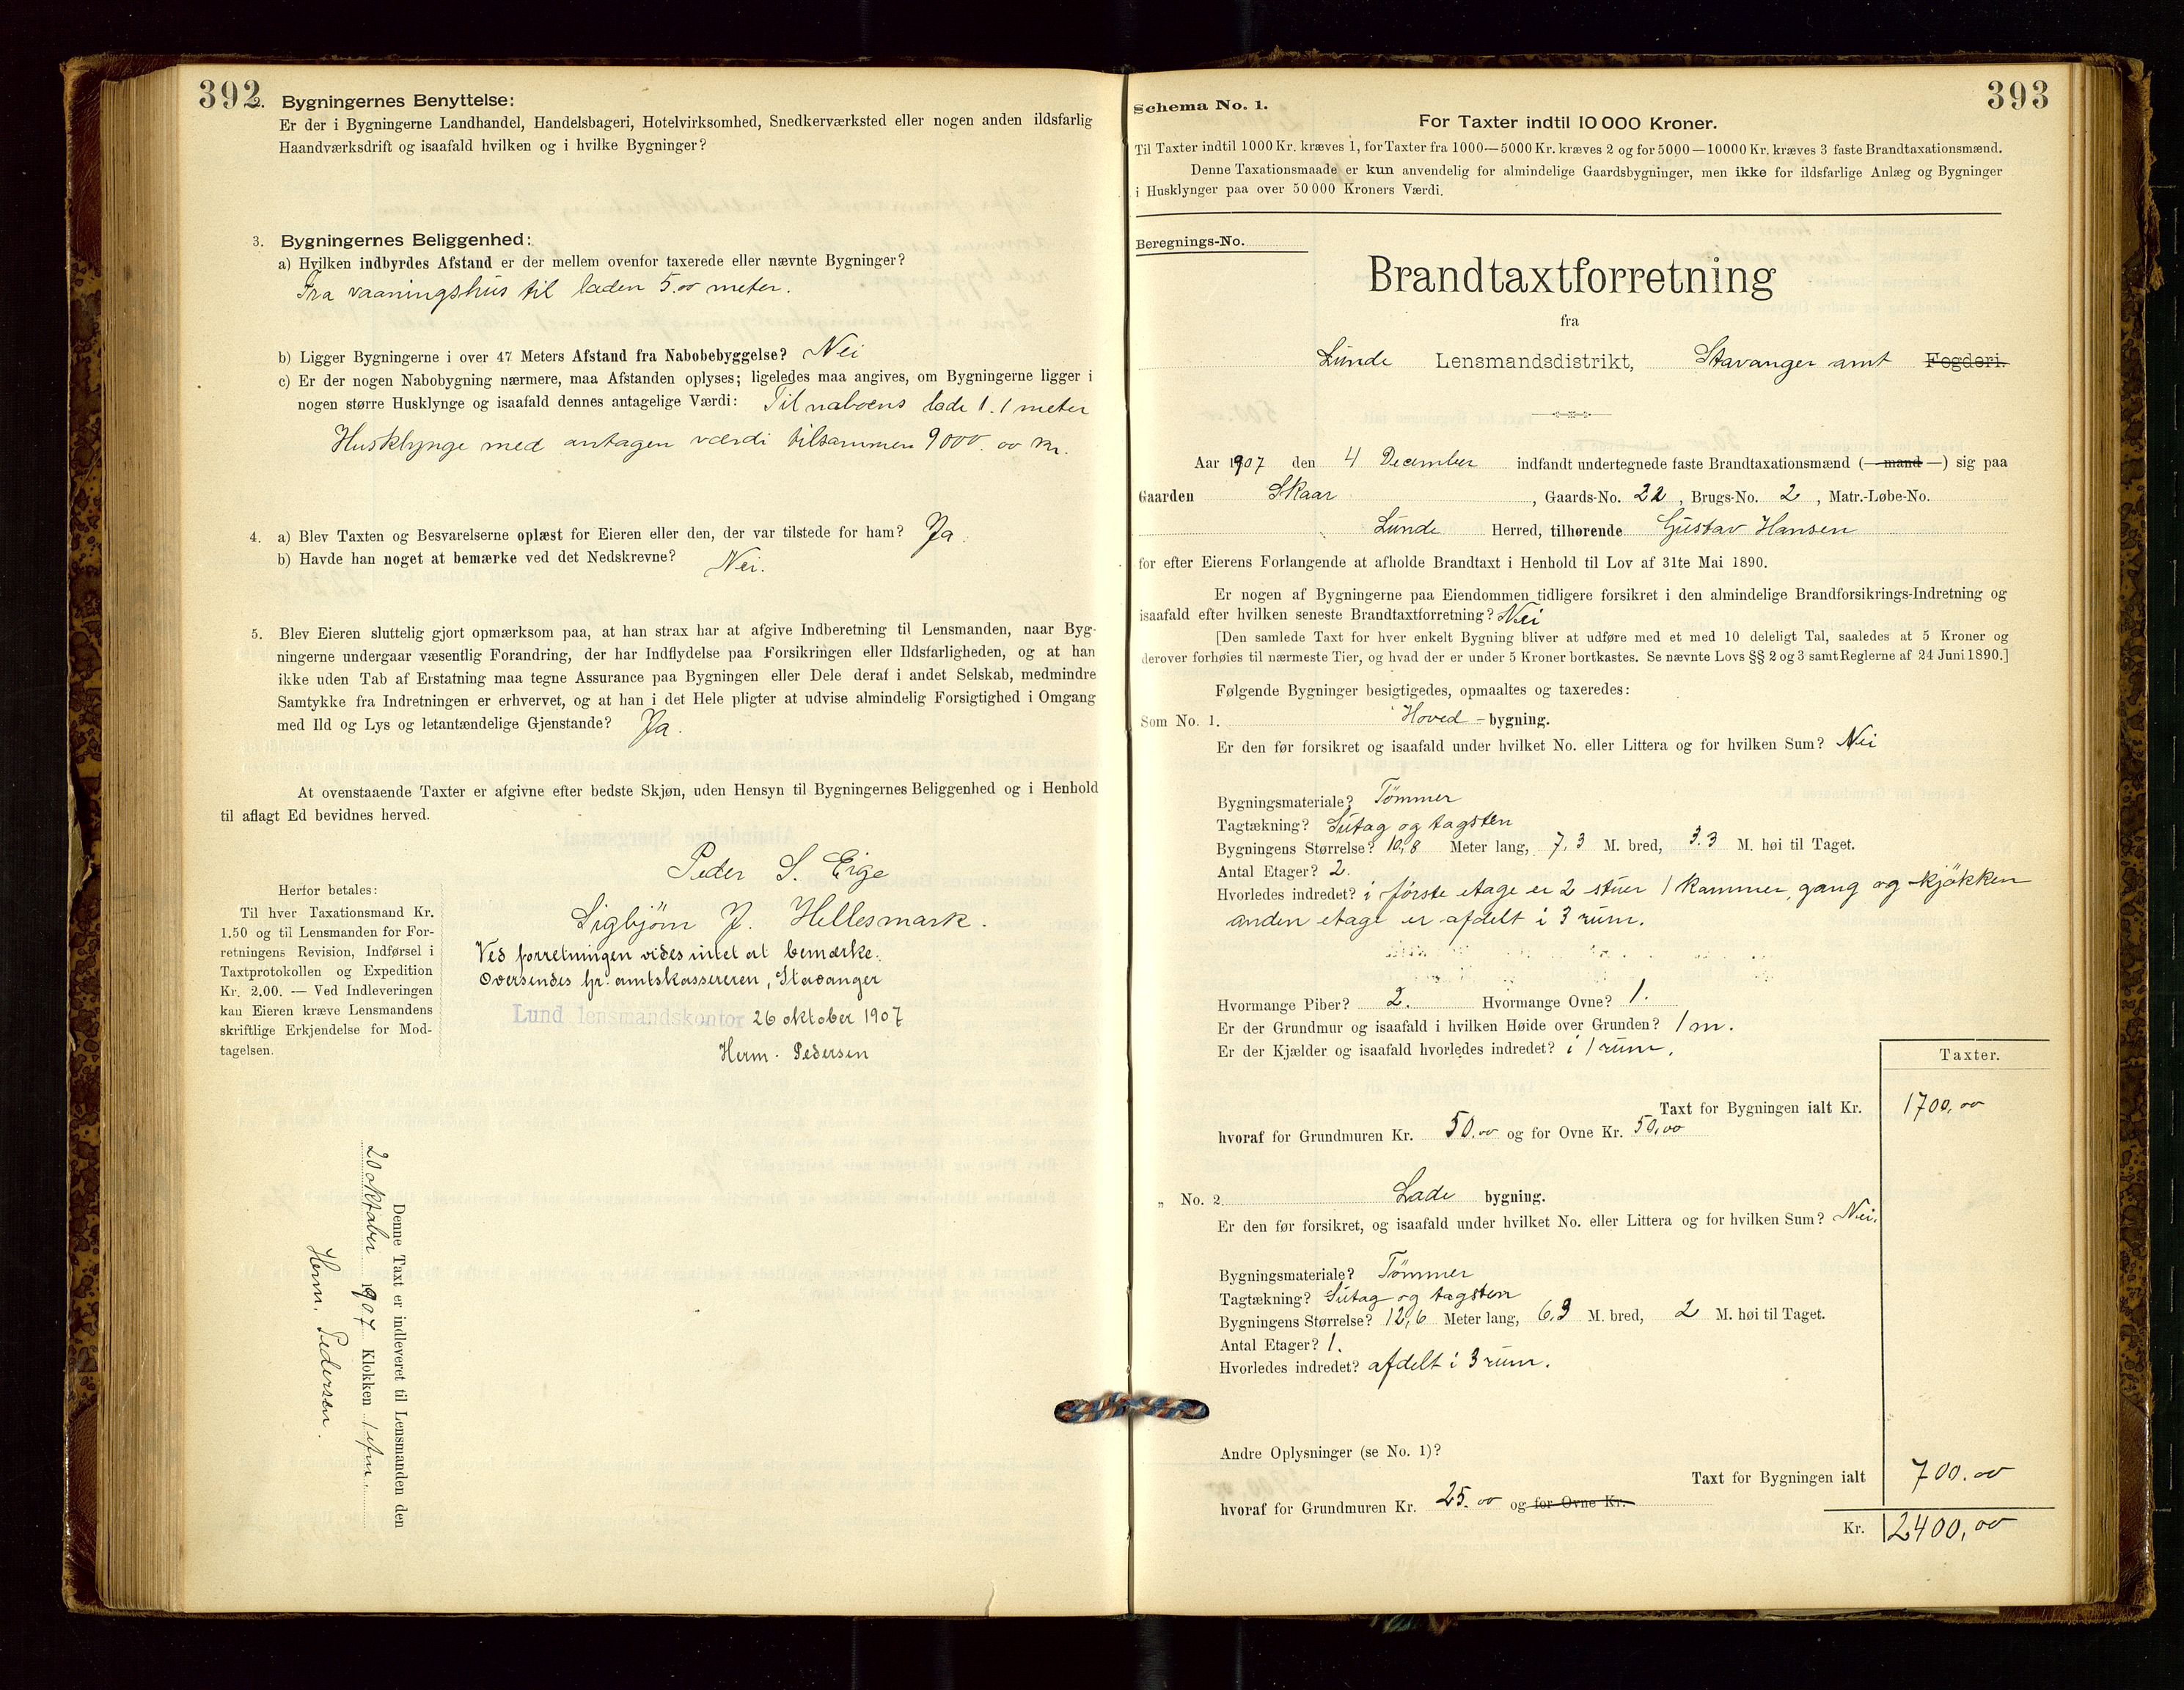 392
2. Bygningernes Benyttelse:
Er der i Bygningerne Landhandel, Handelsbageri, Hotelvirksomhed, Snedkerværksted eller nogen anden ildsfarlig
Haandværksdrift og isaafald hvilken og i hvilke Bygninger?
3. Bygningernes Beliggenhed:
a) Hvilken indbyrdes Afstand er der mellem ovenfor taxerede eller nævnte Bygninger?
Fra vaaningshus til laden 5.00 meter.
b) Ligger Bygningerne i over 47 Meters Afstand fra Nabobebyggelse? Nei
c) Er der nogen Nabobygning nærmere, maa Afstanden oplyses; ligeledes maa angives, om Bygningerne ligger i
nogen større Husklynge og isaafald dennes antagelige Værdi: Til naboens lade 1.1 meter
Husklynge med antagen værdi tilsammen 9000.00 kr.
4. a) Blev Taxten og Besvarelserne oplæst for Eieren eller den, der var tilstede for ham? Ja.
b) Havde han noget at bemærke ved det Nedskrevne? Nei.
5. Blev Eieren sluttelig gjort opmærksom paa, at han strax har at afgive Indberetning til Lensmanden, naar Byg-
ningerne undergaar væsentlig Forandring, der har Indflydelse paa Forsikringen eller Ildsfarligheden, og at han
ikke uden Tab af Erstatning maa tegne Assurance paa Bygningen eller Dele deraf i andet Selskab, medmindre
Samtykke fra Indretningen er erhvervet, og at han i det Hele pligter at udvise almindelig Forsigtighed i Omgang
med Ild og Lys og letantændelige Gjenstande? Ja.
At ovenstaaende Taxter er afgivne efter bedste Skjøn, uden Hensyn til Bygningernes Beliggenhed og i Henhold
til aflagt Ed bevidnes herved.
Peder S. Eige
Sigbjörn J. Hellesmark.
Ved forretningen vides intet at bemærke.
Oversendes hr. amtskassereren, Stavanger
Lund lensmandskontor 26 oktober 1907
Herm. Pedersen
Herfor betales:
Til hver Taxationsmand Kr.
1.50 og til Lensmanden for For-
retningens Revision, Indførsel i
Taxtprotokollen og Expedition
Kr. 2.00. — Ved Indleveringen
kan Eieren kræve Lensmandens
skriftlige Erkjendelse for Mod-
tagelsen.
Denne Taxt er indleveret til Lensmanden den
20 oktober 1907 Klokken 1 efm.
Herm. Pedersen.
393
Schema No. 1.
For Taxter indtil 10 000 Kroner.
Til Taxter indtil 1000 Kr. kræves 1, for Taxter fra 1000—5000 Kr. kræves 2 og for 5000—10000 Kr. kræves 3 faste Brandtaxationsmænd.
Denne Taxationsmaade er kun anvendelig for almindelige Gaardsbygninger, men ikke for ildsfarlige Anlæg og Bygninger
i Husklynger paa over 50 000 Kroners Værdi.
Beregnings-No.
Brandtaxtforretning
fra
Lunde Lensmandsdistrikt, Stavanger amt Fogderi.
Aar 1907 den 4 December indfandt undertegnede faste Brandtaxationsmænd (— mand —) sig paa
Gaarden Skaar, Gaards-No. 22, Brugs-No. 2, Matr.-Løbe-No.
Lunde Herred, tilhørende Gustav Hansen
for efter Eierens Forlangende at afholde Brandtaxt i Henhold til Lov af 31te Mai 1890.
Er nogen af Bygningerne paa Eiendommen tidligere forsikret i den almindelige Brandforsikrings-Indretning og
isaafald efter hvilken seneste Brandtaxtforretning? Nei
[Den samlede Taxt for hver enkelt Bygning bliver at udføre med et med 10 deleligt Tal, saaledes at 5 Kroner og
derover forhøies til nærmeste Tier, og hvad der er under 5 Kroner bortkastes. Se nævnte Lovs §§ 2 og 3 samt Reglerne af 24 Juni 1890.]
Følgende Bygninger besigtigedes, opmaaltes og taxeredes:
Som No. 1. Hoved-bygning.
Er den før forsikret og isaafald under hvilket No. eller Littera og for hvilken Sum? Nei
Bygningsmateriale? Tömmer
Tagtækning? Sutag og tagsten
Bygningens Størrelse? 10,8 Meter lang, 7,3 M. bred, 3.3 M. høi til Taget.
Antal Etager? 2.
Hvorledes indredet? i förste etage er 2 stuer 1 kammer, gang og kjökken
anden etage er afdelt i 3 rum.
Hvormange Piber? 2. Hvormange Ovne? 1.
Er der Grundmur og isaafald i hvilken Høide over Grunden? 1 m.
Er der Kjælder og isaafald hvorledes indredet? i 1 rum.
Taxter.
Taxt for Bygningen ialt Kr. 1700,00
hvoraf for Grundmuren Kr. 50.00 og for Ovne Kr. 50,00
„ No. 2. Lade bygning.
Er den før forsikret, og isaafald under hvilket No. eller Littera og for hvilken Sum? Nei.
Bygningsmateriale? Tömmer
Tagtækning? Sutag og tagsten
Bygningens Størrelse? 12,6 Meter lang, 6,3 M. bred, 2 M. høi til Taget.
Antal Etager? 1.
Hvorledes indredet? afdelt i 3 rum.
Andre Oplysninger (se No. 1)?
Taxt for Bygningen ialt 700.00
hvoraf for Grundmuren Kr. 25.00 og for Ovne Kr.
Kr. 2400,00